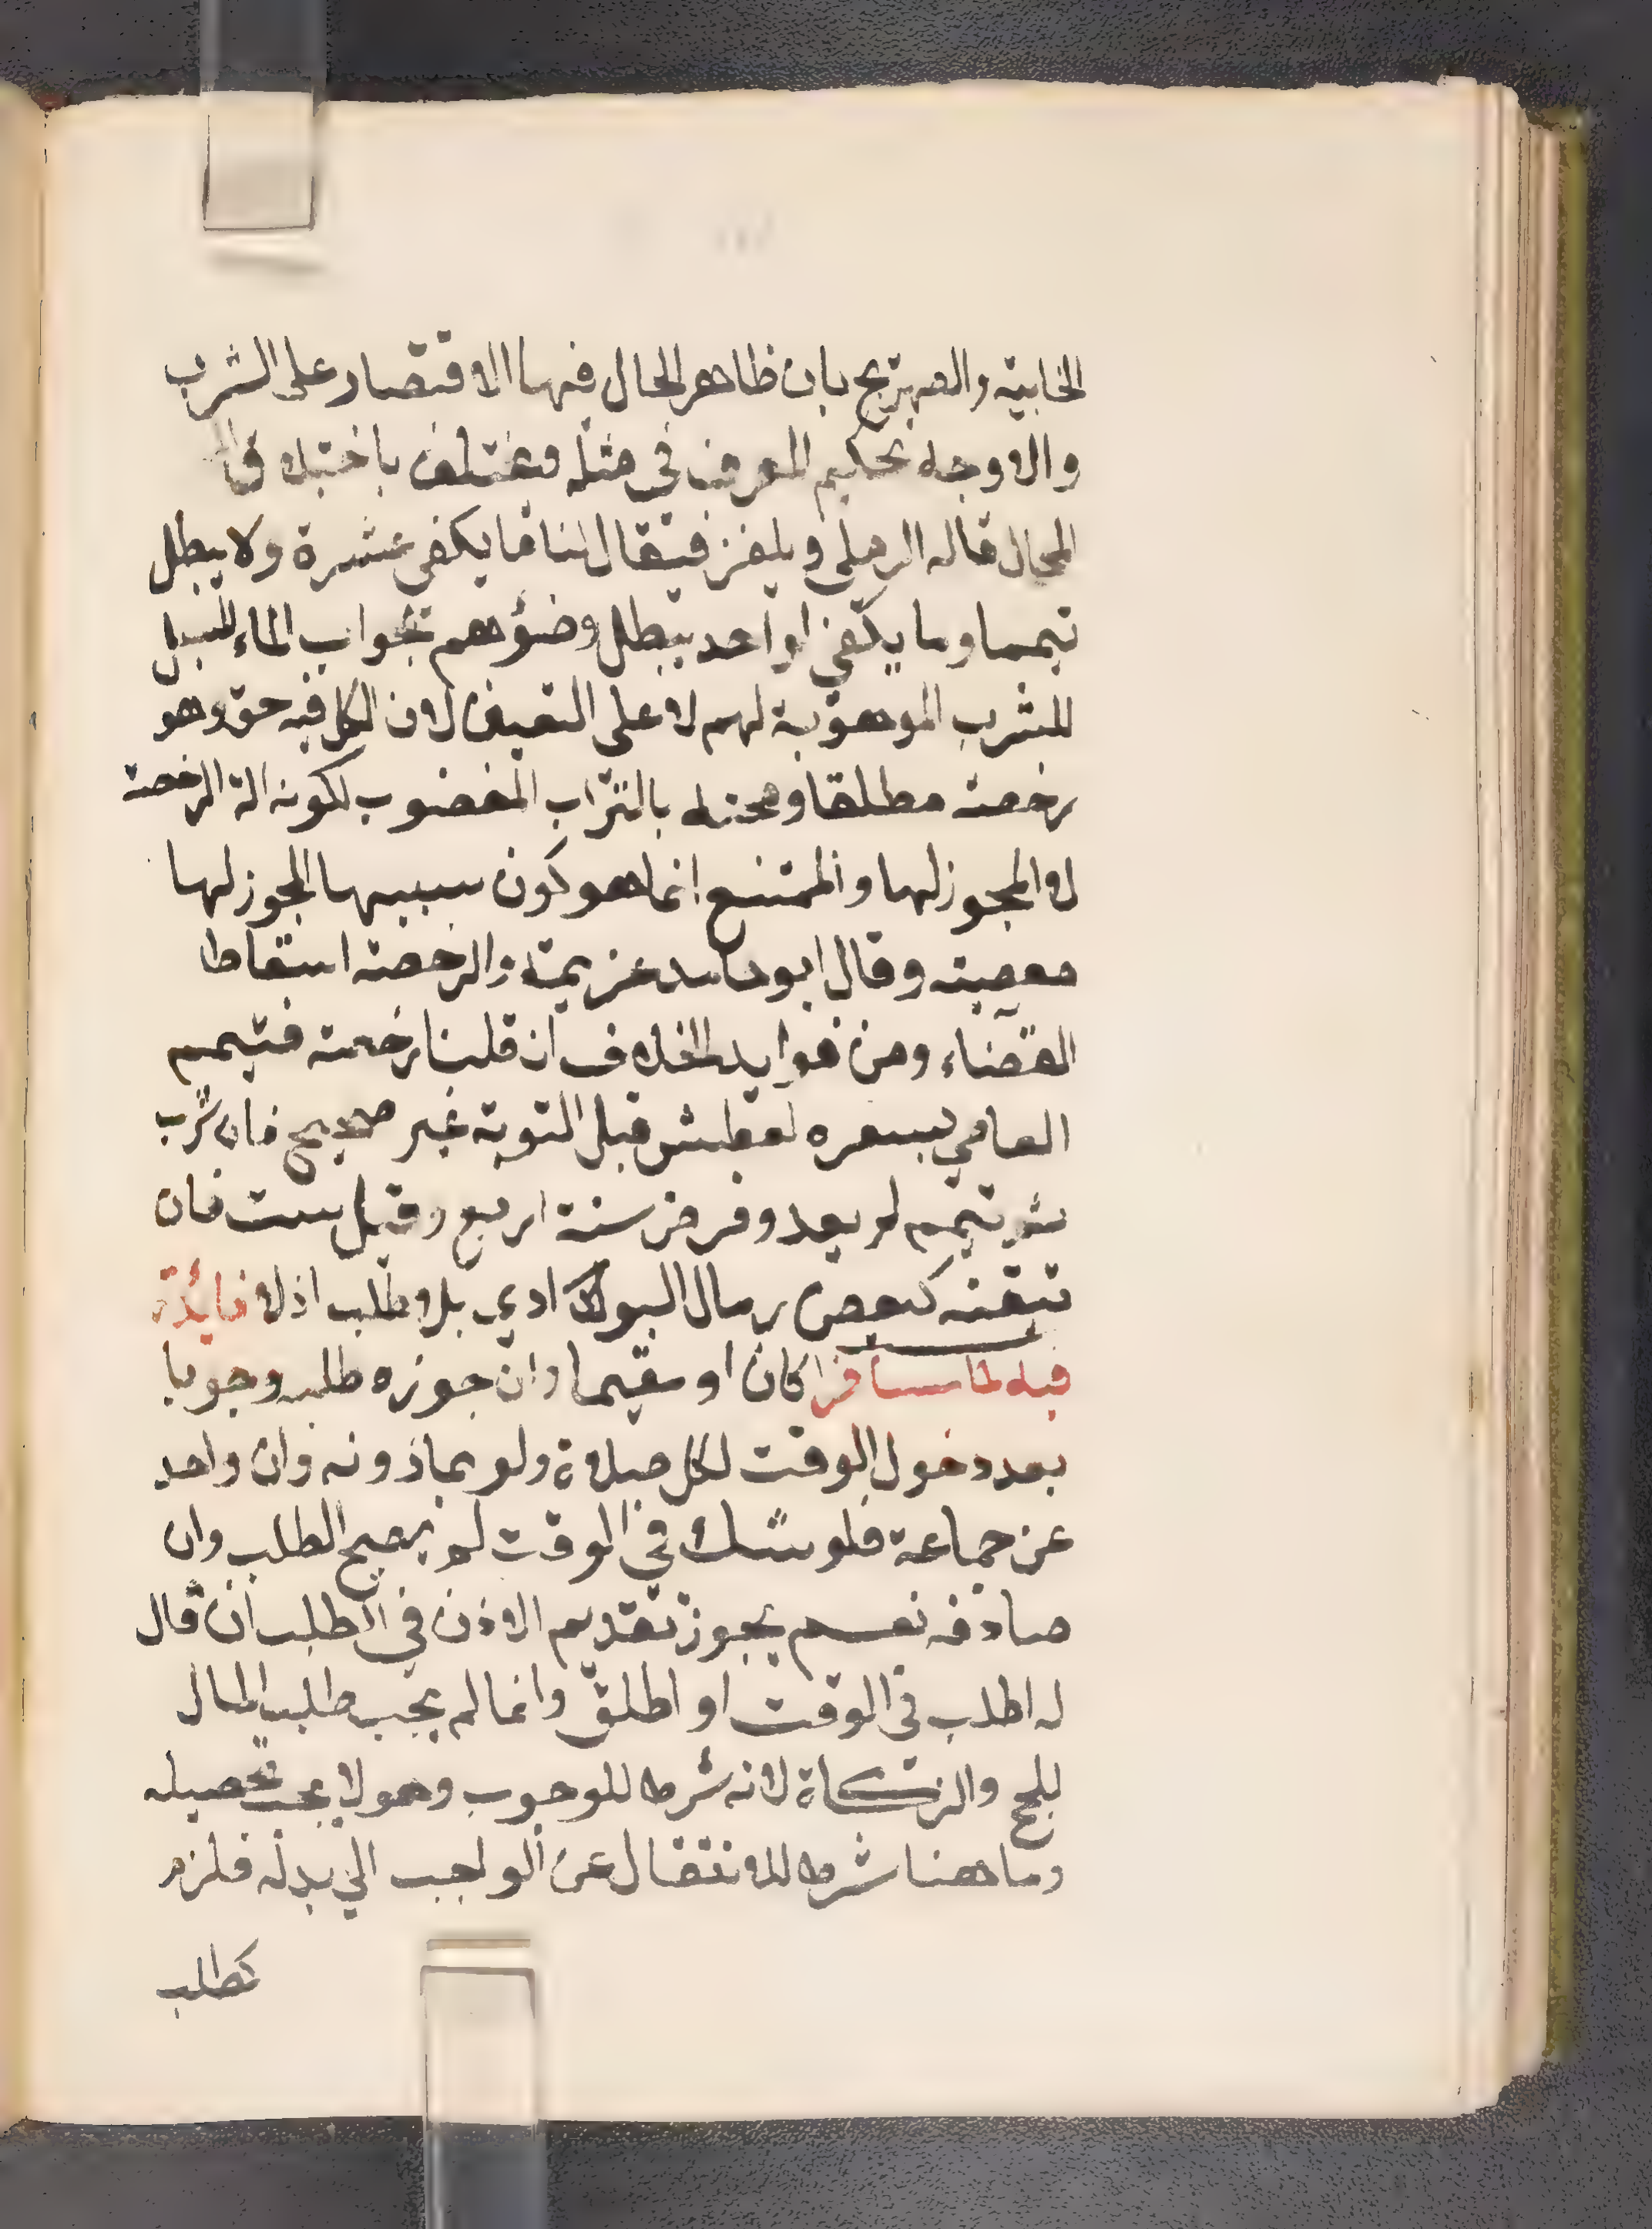 الخابية والصهريج بان ظاهر الحال فيها الاقتصار على الشرب
والاوجه تحكيم العرف في مثله فيختلف باختلاف
المحال قاله الرملي ويلغز فيقال لنا ما يكفي عشرة ولا يبطل
تيممهم وما يكفي لواحد يبطل وضؤهم بجواب الماء المسبل
للشرب الموهوبة لهم لا على التعيين لان لكل فيه حق وهو
رخصة مطلقا وصحته بالتراب المغضوب لكونه الة الرخصة
لا المجوز لها والممتنع انما هو كون سببها المجوز لها
معصية وقال ابو حامد عزيمة والرخصة اسقاط
القضاء ومن فوايد الخلاف ان قلنا رخصة فتيمم
العاصي بسفره لعطش قبل التوبة غير صحيح فان شرب
ثم تيمم لم يعد وفرض سنة اربع وقيل ست فان
تيقنه كبعض رمال البوادي بلا طلب اذ لا فائدة
فيه لمسافرا كان او مقيما وان جوزه طلبه وجوبا
بعد دخول الوقت لكل صلاة ولو بماذونه وان واحد
عن جماعة فلو شك في الوقت لم يصح الطلب وان
صادفه نعم يجوز تقديم الاذن في الطلب ان قال
له اطلب في الوقت او اطلق وانما لم يجب طلب المال
للحج والزكاة لانه شرط للوجوب وهو لا يجب تحصيله
وما هنا شرط للانتقال عن الواجب الي بدله فلزم
كطلب